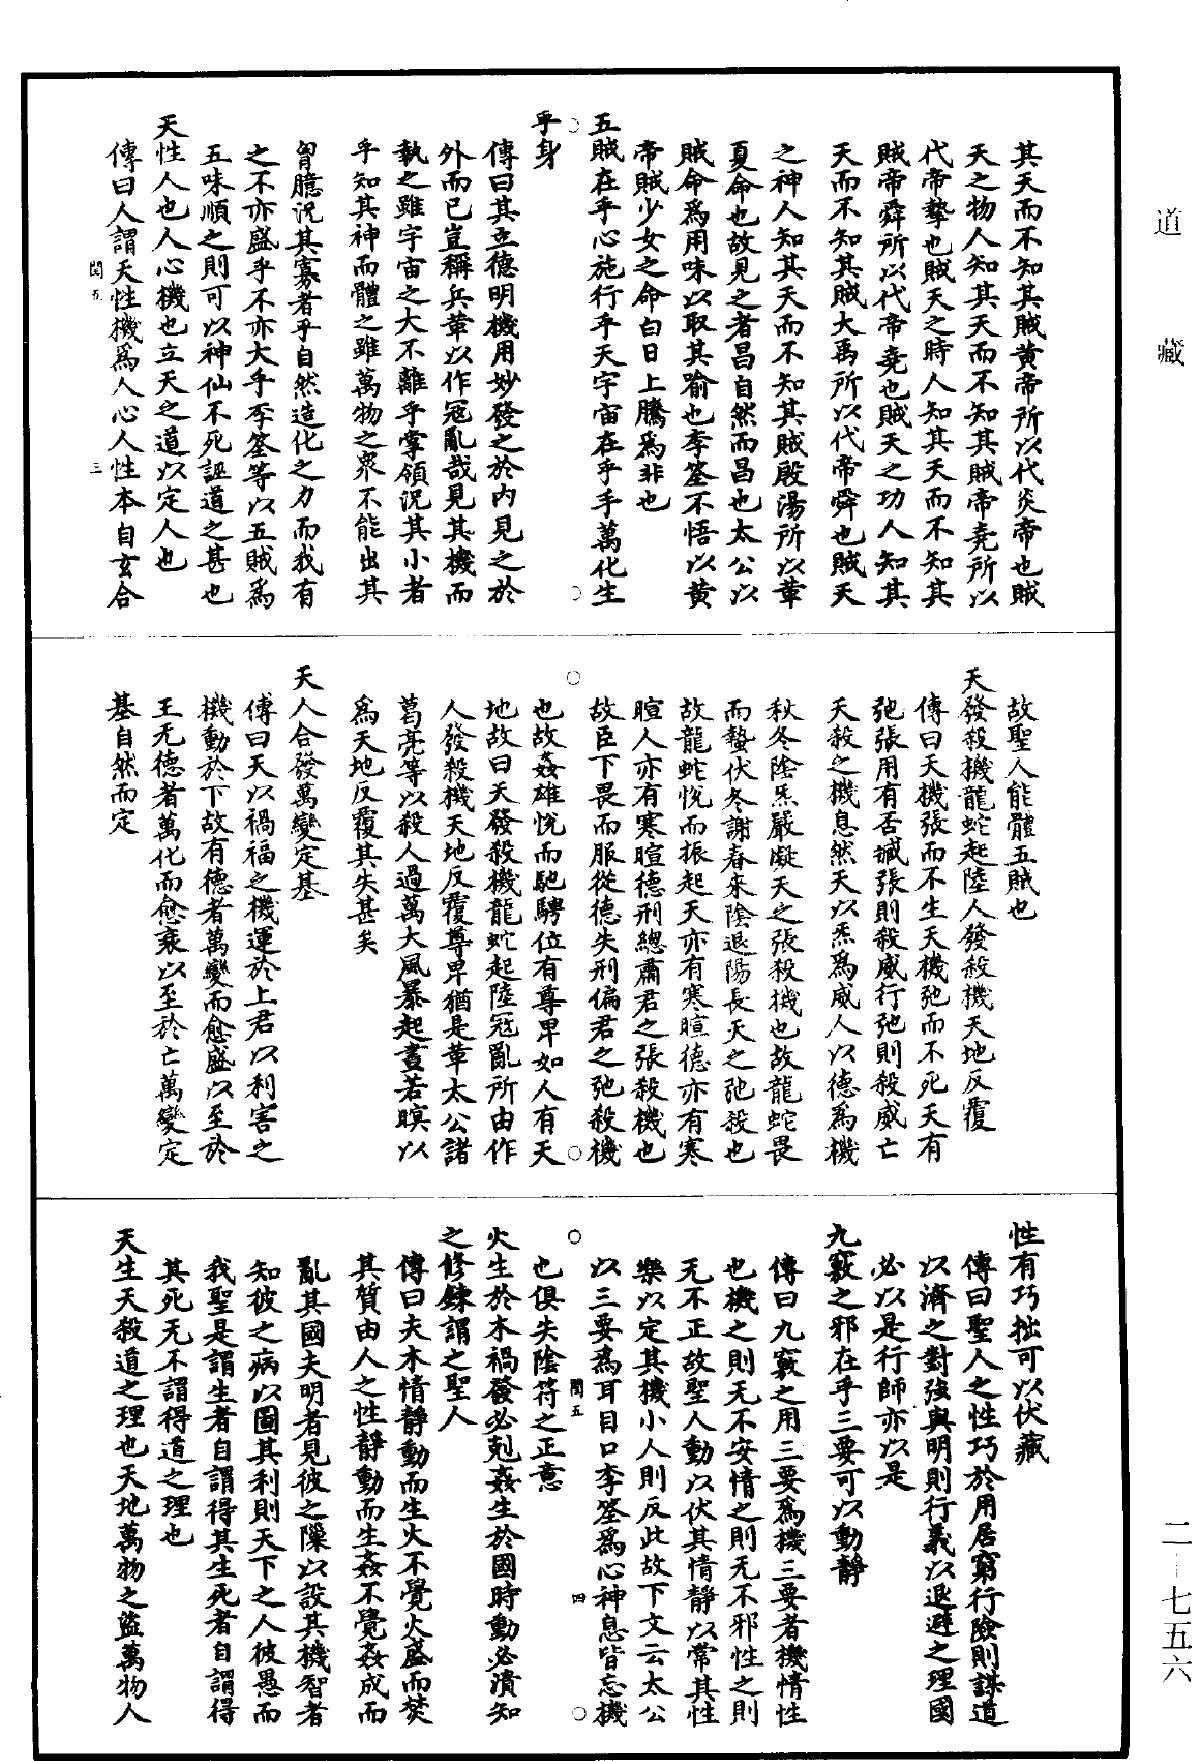 道藏
其天而不知其賊黃帝所以代炎帝也賊
天之物人知其天而不知其賊帝堯所以
代帝摯也賊天之時人知其天而不知其
賊帝舜所以代帝堯也賊天之功人知其
天而不知其賊大禹所以代帝舜也賊天
之神人知其天而不知其賊殷湯所以革
夏命也故見之者昌自然而昌也太公以
賊命爲用味以取其喻也李筌不悟以黃
帝賊少女之命白日上騰爲非也
五賊在乎心施行乎天宇宙在乎手萬化生
乎身
傳曰其立德明機用妙發之於內見之於
外而已豈稱兵革以作寇亂哉見其機而
執之雖宇宙之大不離乎掌領況其小者
乎知其神而體之雖萬物之衆不能出其
胷臆況其寡者乎自然造化之力而我有
之不亦盛乎不亦大乎李筌等以五賊爲
五味順之則可以神仙不死誣道之甚也
天性人也人心機也立天之道以定人也
傳曰人謂天性機爲人心人性本自玄合
閏五 三
故聖人能體五賊也
天發殺機龍蛇起陸人發殺機天地反覆
傳曰天機張而不生天機弛而不死天有
弛張用有否臧張則殺威行弛則殺威亡
天殺之機息然天以炁爲威人以德爲機
秋冬陰炁嚴凝天之張殺機也故龍蛇畏
而蟄伏冬謝春來陰退陽長天之弛殺也
故龍蛇悅而振起天亦有寒暄德亦有寒
暄人亦有寒暄德刑總肅君之張殺機也
故臣下畏而服從德失刑偏君之弛殺機
也故姦雄悅而馳騁位有尊卑如人有天
地故曰天發殺機龍蛇起陸寇亂所由作
人發殺機天地反覆尊卑猶是革太公諸
葛亮等以殺人過萬大風暴起晝若暝以
爲天地反覆其失甚矣
天人合發萬變定基
傳曰天以禍福之機運於上君以利害之
機動於下故有德者萬變而愈盛以至於
王无德者萬化而愈衰以至於亡萬變定
基自然而定
性有巧拙可以伏藏
傳曰聖人之性巧於用居窮行險則謀道
以濟之對強與明則行義以退避之理國
必以是行師亦以是
九竅之邪在乎三要可以動靜
傳曰九竅之用三要爲機三要者機情性
也機之則无不安情之則无不邪性之則
无不正故聖人動以伏其情靜以常其性
樂以定其機小人則反此故下文云太公
以三要爲耳目口李筌爲心神息皆忘機
也俱失陰符之正意
閏五 四
火生於木禍發必剋姦生於國時動必潰知
之修鍊謂之聖人
傳曰夫木情靜動而生火不覺火盛而焚
其質由人之性靜動而生姦不覺姦成而
亂其國夫明者見彼之隟以設其機智者
知彼之病以圖其利則天下之人彼愚而
我聖是謂生者自謂得其生死者自謂得
其死无不謂得道之理也
天生天殺道之理也天地萬物之盜萬物人
二―七五六